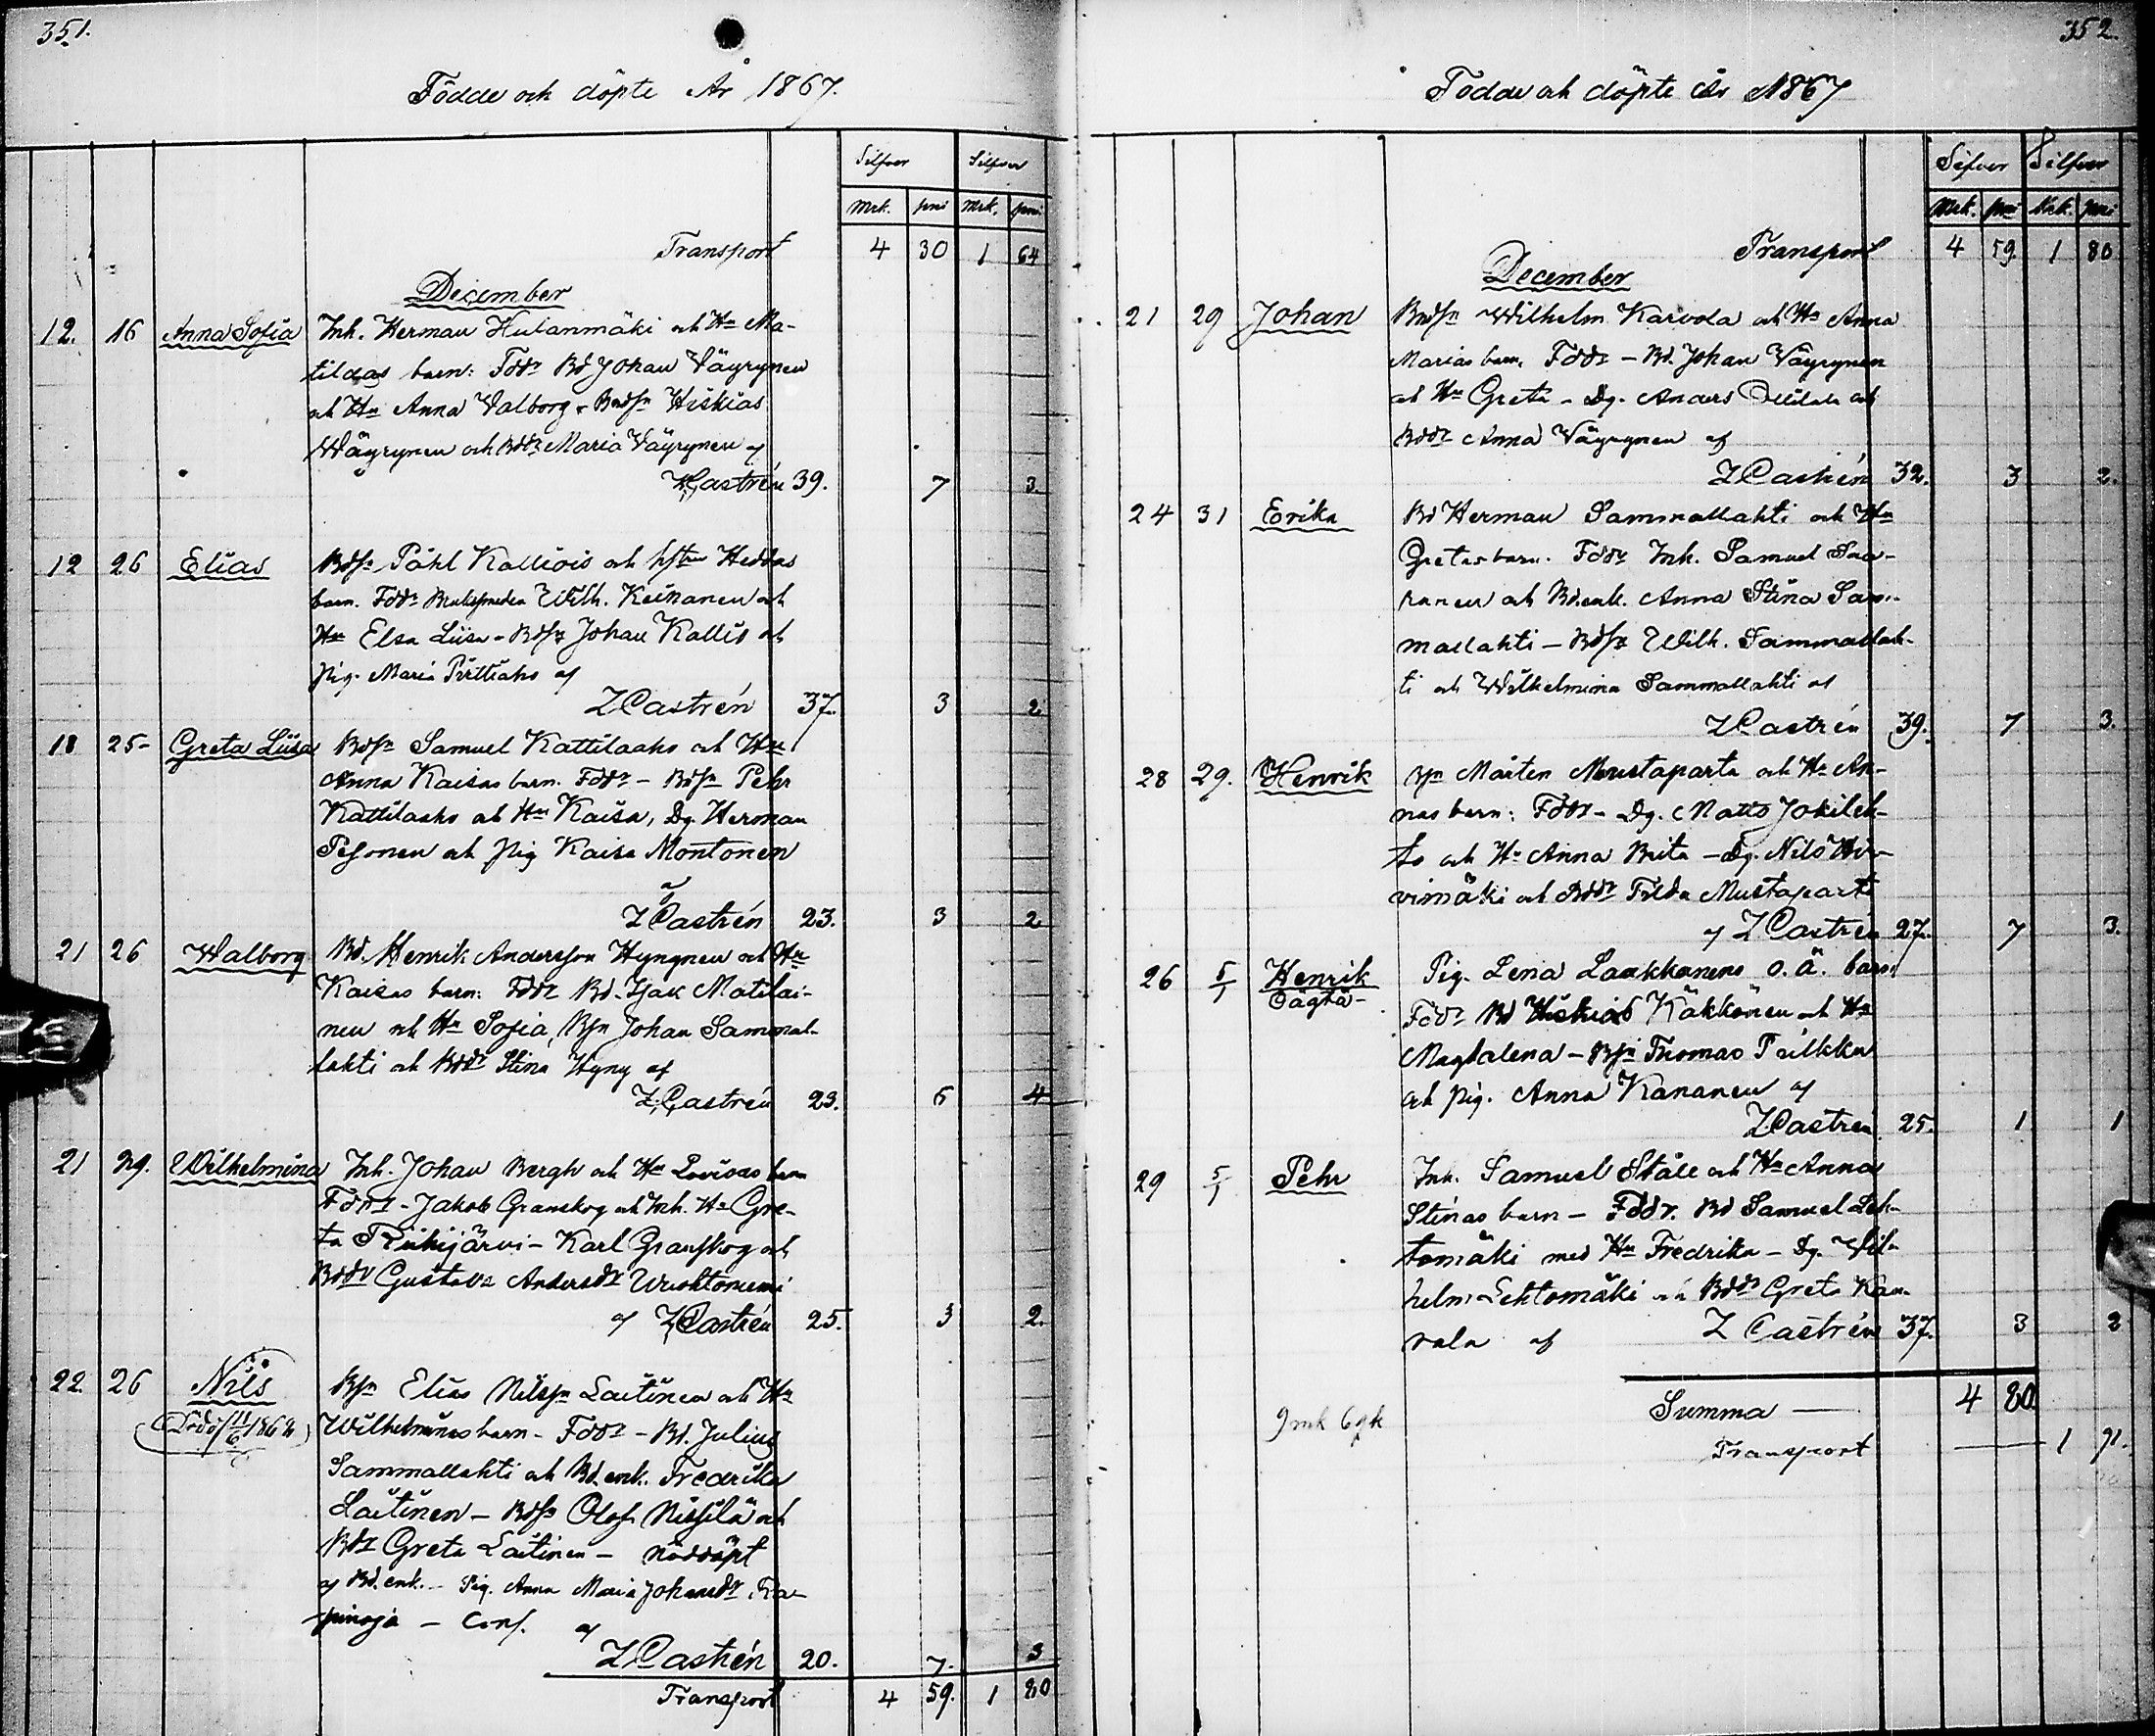 351.
Födde och döpte År 1867.
Silfver Silfver
Mrk. pni Mrk. pni
Transport 4 30 1 64
December
12. 16 Anna Sofia Inh. Herman Hulanmäki och Hu Ma-
tildas barn: Fddr Bd Johan Väyrynen
och Hu Anna Valborg - Bndsn Hiskias
Wäyrynen och Bddr Maria Väyrynen af
Castrén 39. 7 3.
12 26 Elias Bdsn Påhl Kalliois och hstru Heddas
barn. Fddr Wilh. Keinänen och
Hu Elsa Liisa - Bdsn Johan Kallio och
pig. Maria Pirttiaho af
Z Castrén 37. 3 2
18 25- Greta Liisa Bdsn Samuel Kattilaaho och Hu
Anna Kaisas barn. Fddr - Bdsn Pehr
Kattilaaho och Hu Kaisa, Dg. Herman
Pesonen och pig Kaisa Montonen
af
Z Castrén 23. 3 2
21 26 Walborg Bd. Henrik Andersson Hyngnen och Hu
Kaisas barn: Fddr Bd. Isak Matilai-
nen och Hu Sofia, Bsn Johan Sammal-
lahti och Bddr Stina Hyny af
Z. Castrén 23. 6 4
21 29. Wilhelmina Inh. Johan Bergh och Hu Lovisas barn
Fddr - Jakob Granskog och Inh. Hu Gre-
ta Riihijärvi - Karl Granskog och
Bddr Gustava Andersdr Wuohtoniemi
af Z Castrén 25. 3 2.
22. 26 Nils Bsn Elias Nilssn Laitinen och Hu
(Död 11/6 1862) Wilhelminas barn - Fddr - Bd. Julius
Sammallahti och Bd. enk. Fredrika
Laitinen - Bdsn Olof Nissilä och
Bdr Greta Laitinen - nöddöpt
af Bd. enk. - Pig. Anna Maria Johansdr Ha-
pinoja - Conf. af
Z Castrén 20. 7. 3
Transport 4 59. 1 80
352.
Födde och döpte År 1867
Silfver Silfver
Mrk. pni Mrk. pni
Transport 4 59. 1 80
December
21 29 Johan Bndsn Wilhelm Karvola och Hu Anna
Marias barn. Fddr - Bd. Johan Väyrynen
och Hu Greta - Dg. Anders och
Bddr Anna Väyrynen af
Z Castrén 32. 3 2.
24 31 Erika Bd Herman Sammallahti och Hu
Gretas barn. Fddr Inh. Samuel Saa-
ranen och Bd. enk. Anna Stina Sam-
mallahti - Bdsn Wilh. Sammallah-
ti och Wilhelmina Sammallahti af
Z Castrén 39. 7 3.
28 29. Henrik Bsn Mårten Mustaparta och Hu An-
nas barn: Fddr - Dg. Matts Jokileh-
to och Hu Anna Brita - Dg. Nils Hir-
vimäki och Bddr Frida Mustaparta
af Z Castrén 27. 7 3.
26 5/1 Henrik Pig. Lena Laakkonens o. ä. barn
Oägta - Fddr Bd Hiskias Käkkönen och Hu
Magdalena - Bsn Thomas Pulkka
och pig. Anna Kananen af
Z Castrén 25. 1 1
29 5/1 Pehr Inh. Samuel Ståle och Hu Anna
Stinas barn - Fddr. Bd Samuel Leh-
tomäki med Hu Fredrika - Dg. Wil-
helm Lehtomäki och Bddr Greta Kau-
rala af Z Castrén 37. 3 2
Summa - 4 80.
9 mk 6 pk
Transport 1 91.